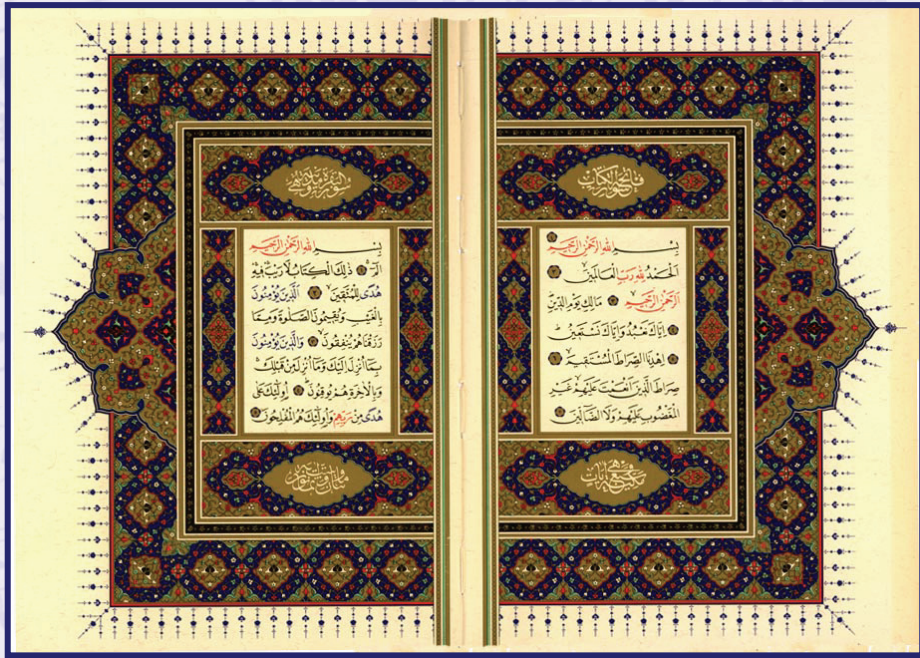 فاتحة الكتاب
بِسْمِ اللهِ الرَّحْمٰنِ الرَّحِيمِ ١
اَلْحَمْدُ لِلّٰهِ رَبِّ الْعَالَمِينَ ٢
اَلرَّحْمٰنِ الرَّحِيمِ ٣ مَالِكِ يَوْمِ الدِّينِ
٤ اِيَّاكَ نَعْبُدُ وَاِيَّاكَ نَسْتَعِينُ
٥ اِهْدِنَا الصِّرَاطَ الْمُسْتَقِيمَ ٦
صِرَاطَ الَّذِينَ اَنْعَمْتَ عَلَيْهِمْ غَيْرِ
الْمَغْضُوبِ عَلَيْهِمْ وَلَا الضَّالِّينَ ٧
مكية وهي سبع آيات
سورة البقرة مدنية وهي
بِسْمِ اللهِ الرَّحْمٰنِ الرَّحِيمِ
الٓمٓ ١ ذٰلِكَ الْكِتَابُ لَا رَيْبَ فِيهِ
هُدًى لِلْمُتَّقِينَ ٢ اَلَّذِينَ يُؤْمِنُونَ
بِالْغَيْبِ وَيُقِيمُونَ الصَّلٰوةَ وَمِمَّا
رَزَقْنَاهُمْ يُنْفِقُونَ ٣ وَالَّذِينَ يُؤْمِنُونَ
بِمَا اُنْزِلَ اِلَيْكَ وَمَا اُنْزِلَ مِنْ قَبْلِكَ
وَبِالْاٰخِرَةِ هُمْ يُوقِنُونَ ٤ اُولٰٓئِكَ عَلٰى
هُدًى مِنْ رَبِّهِمْ وَاُولٰٓئِكَ هُمُ الْمُفْلِحُونَ ٥
مائتان وست وثمانون آية